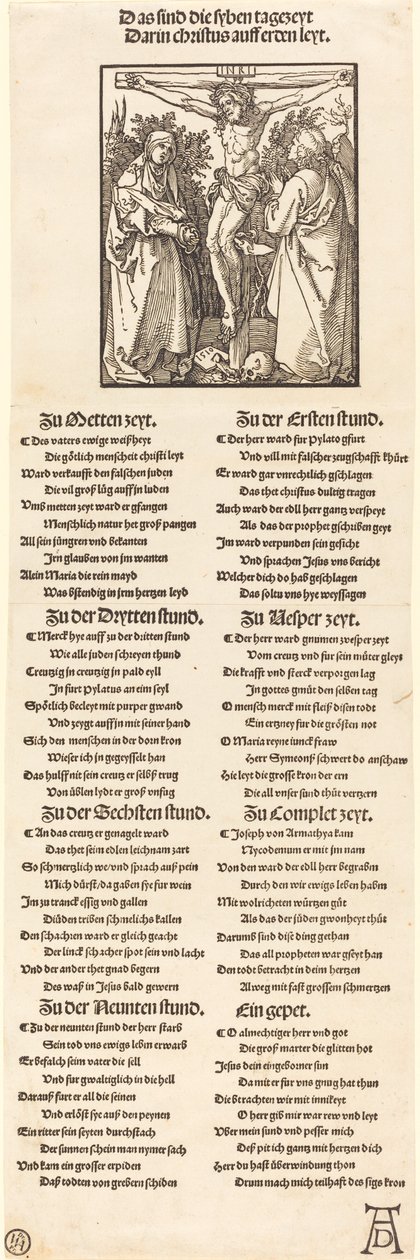 Das sind die syben tagezeyt
Darin christus auff erden leyt.
INRI
1510
Zu Metten zeyt.
Des vaters ewige weißheyt
Die götlich menscheit christi leyt
Ward verkaufft den falschen juden
Die vil groß lüg auff jn luden
Vmb metten zeyt ward er gfangen
Menschlich natur het groß pangen
All sein jüngren vnd bekanten
Jrn glauben von jm wanten
Alein Maria die rein mayd
Was bstendig in jrm hertzen leyd
Zu der Ersten stund.
Der herr ward fur Pylato gfurt
Vnd vill mit falscher zeugschafft khürt
Er ward gar vnrechtlich gschlagen
Das thet christus dultig tragen
Auch ward der edll herr gantz verspeyt
Als das der prophet gschriben geyt
Jm ward verpunden sein gesicht
Vnd sprachen Jesus vns bericht
Welcher dich do hab geschlagen
Das soltu vns hye weyssagen
Zu der Drytten stund.
Merck hye auff zu der dritten stund
Wie alle juden schreyen thund
Creutzig jn creutzig jn pald eyll
Jn furt Pylatus an eim seyl
Spötlich becleyt mit purper gwand
Vnd zeygt auff jn mit seiner hand
Sich den menschen in der dorn kron
Wie ser ich jn gegeysselt han
Das hulff nit sein creutz er selbst trug
Von üblen lydt er groß vnfug
Zu Vesper zeyt.
Der herr ward gnumen zvesper zeyt
Vom creutz vnd fur sein müter gleyt
Die krafft vnd sterck verporgen lag
Jn gottes gmüt den selben tag
O mensch merck mit fleiß disen todt
Ein ertzney fur die grösten not
O Maria reyne junckfraw
Herr Symeonß schwert do anschaw
Hie leyt die grosse kron der ern
Die all vnser sund thüt vertzern
Zu der Sechsten stund.
An das creutz er genagelt ward
Das thet seim edlen leichnam zart
So schmertzlich we/vnd sprach auß pein
Mich dürst/da gaben sye fur wein
Jm zu tranck essig vnd gallen
Die üden triben schmelichs kallen
Den schachren ward er gleich geacht
Der linck schacher spot sein vnd lacht
Vnd der ander thet gnad begern
Des waß in Jesus bald gewern
Zu Complet zeyt.
Joseph von Armathya kam
Nycodemum er mit jm nam
Von den ward der edll herr begrabm
Durch den wir ewigs leben habm
Mit wolricheten würtzen güt
Als das der jüden gwonheyt thüt
Darumb sind dise ding gethan
Das all propheten war gseyt han
Den todt betracht in deim hertzen
Alweg mit fast grossem schmertzen
Zu der Neunten stund.
Zu der neunten stund der herr starb
Sein tod vns ewigs lebm erwarb
Er befalch seim vater die sell
Vnd fur gwaltiglich in die hell
Darauß furt er all die seinen
Vnd erlöst sye auß den peynen
Ein ritter sein seyten durchstach
Der sunnen schein man nymer sach
Vnd kam ein grosser erpiden
Daß todten von grebern schiden
Ein gepet.
O almechtiger herr vnd got
Die groß marter die glitten hot
Jesus dein eingeborner sun
Damit er fur vns gnug hat thun
Die btrachten wir mit innikeyt
O herr gib mir war rew vnd leyt
Vber mein sund vnd pesser mich
Deß pit ich gantz mit hertzen dich
Herr du hast überwindung thon
Drum mach mich teilhaft des sigs kron
AD